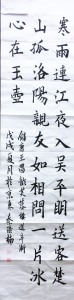 寒雨連江夜入吳平明送客楚
山孤洛陽親友如相問一片冰
心在玉壺
唐王昌齡芙蓉樓送辛漸
戊戌夏月於京